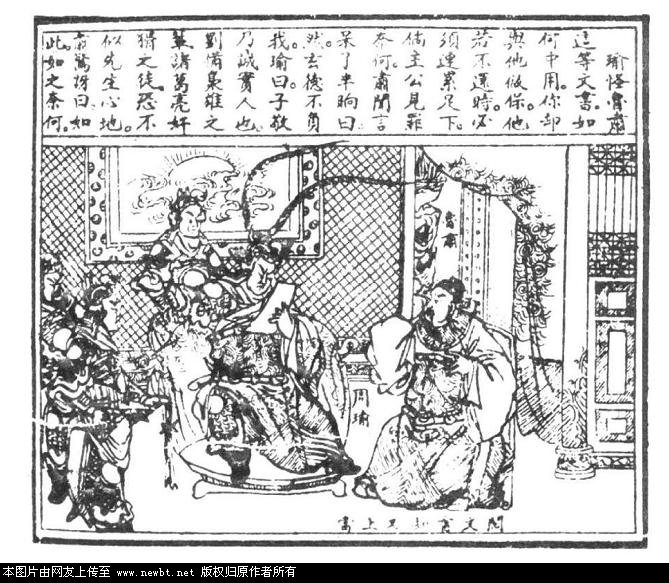 瑜怪魯肅
這等文書。如
何中用。你却
與他做保。他
若不還時。必
須連累足下。
倘主公見罪
奈何。肅聞言
呆了半晌曰
玄德不負
我。瑜曰。子敬
乃誠實人也。
劉備梟雄之
輩。諸葛亮奸
猾之徒。恐不
似先生心地。
肅驚訝曰。如
此如之奈何。
魯肅
周瑜
閱文書知其上當
本图片由网友上传至 www.newbt.net 版权归原作者所有